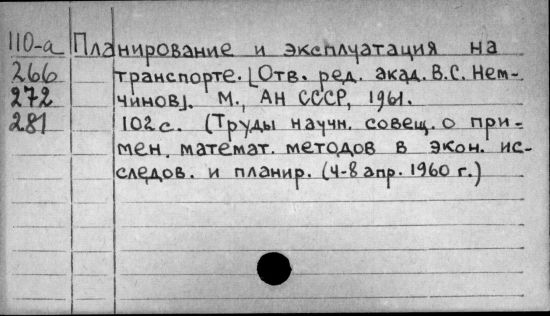 110-а Планирование и эксплуатация на
266 транспорте. [Отв. ред. акад. В.С. Нем-
272 чинов]. М., АН СССР, 1961.
281 102 с. (Труды научн. совещ. о при-
мен. математ. методов в экон. ис-
следов. и планир. (4-8 апр. 1960 г.)